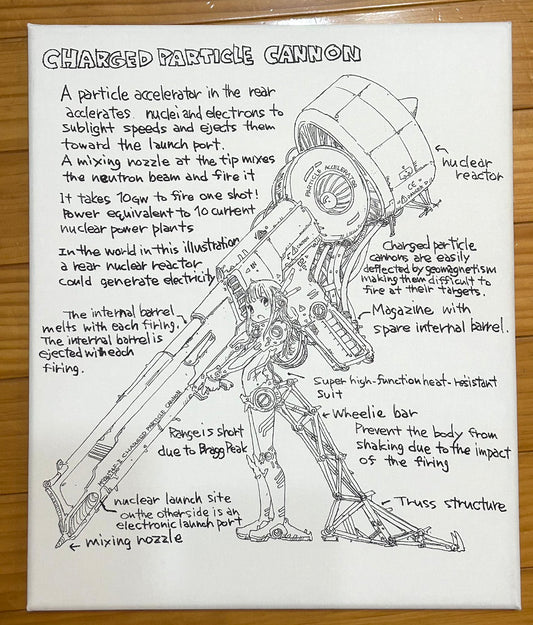 CHARGED PARTICLE CANNON
A particle accelerator in the rear
acclerates nuclei and electrons to
sublight speeds and ejects them
toward the launch port.
A mixing nozzle at the tip mixes
the neutron beam and fire it
It takes 10GW to fire one shot!
Power equivalent to 10 current
nuclear power plants
In the world in this illustration
a rear nuclear reactor
could generate electricity
nuclear
reactor
PARTICLE ACCELERATOR
CE
Charged particle
cannons are easily
deflected by geomagnetism
making them difficult to
fire at their targets.
The internal barrel
melts with each firing.
The internal barrel is
ejected with each
firing.
Magazine with
spare internal barrel.
Super high-function heat-resistant
suit
Wheelie bar
Prevent the body from
shaking due to the impact
of the firing
CHARGED PARTICLE CANNON
Range is short
due to Bragg Peak
nuclear launch site
on the other side is an
electronic launch port
mixing nozzle
Truss structure